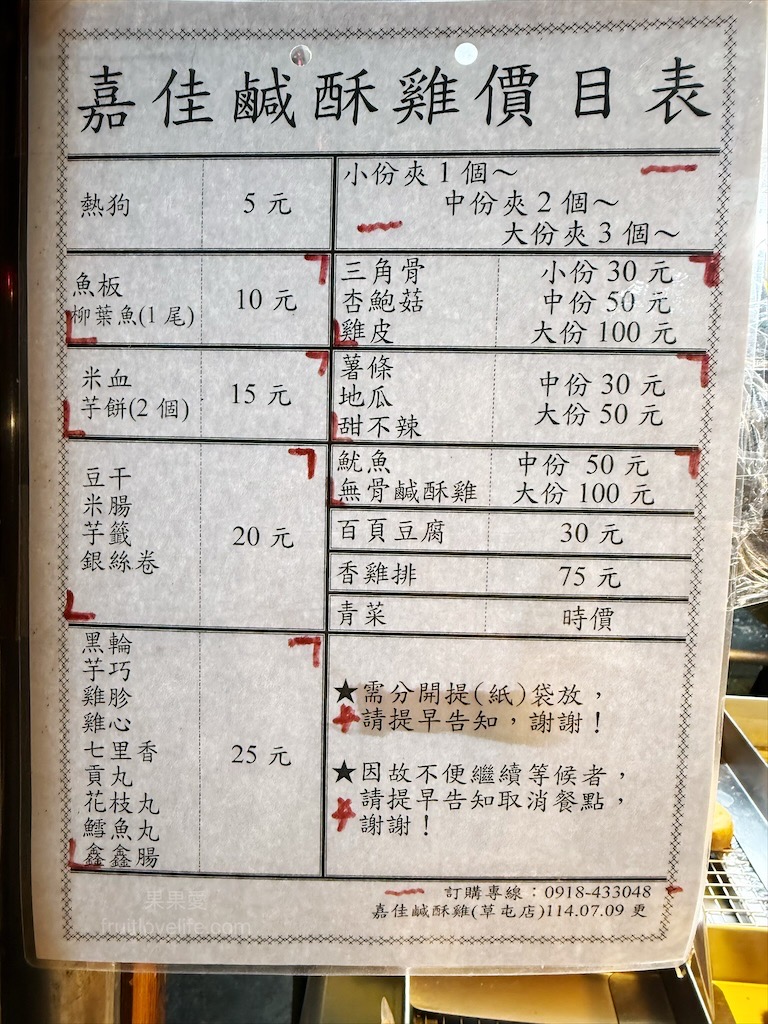 嘉佳鹹酥雞價目表
熱狗 5 元
魚板
柳葉魚(1 尾)
10 元
米血
芋餅(2 個)
15 元
豆干
米腸
芋籤
銀絲卷
20 元
黑輪
芋巧
雞胗
雞心
七里香
貢丸
花枝丸
鱈魚丸
鑫鑫腸
25 元
小份夾 1 個～
中份夾 2 個～
大份夾 3 個～
三角骨
杏鮑菇
雞皮
小份 30 元
中份 50 元
大份 100 元
薯條
地瓜
甜不辣
中份 30 元
大份 50 元
魷魚
無骨鹹酥雞
中份 50 元
大份 100 元
百頁豆腐 30 元
香雞排 75 元
青菜 時價
★需分開提(紙)袋放，
請提早告知，謝謝！
★因故不便繼續等候者，
請提早告知取消餐點，
謝謝！
訂購專線：0918-433048
嘉佳鹹酥雞(草屯店)114.07.09 更
果果愛
fruitlovelife.com